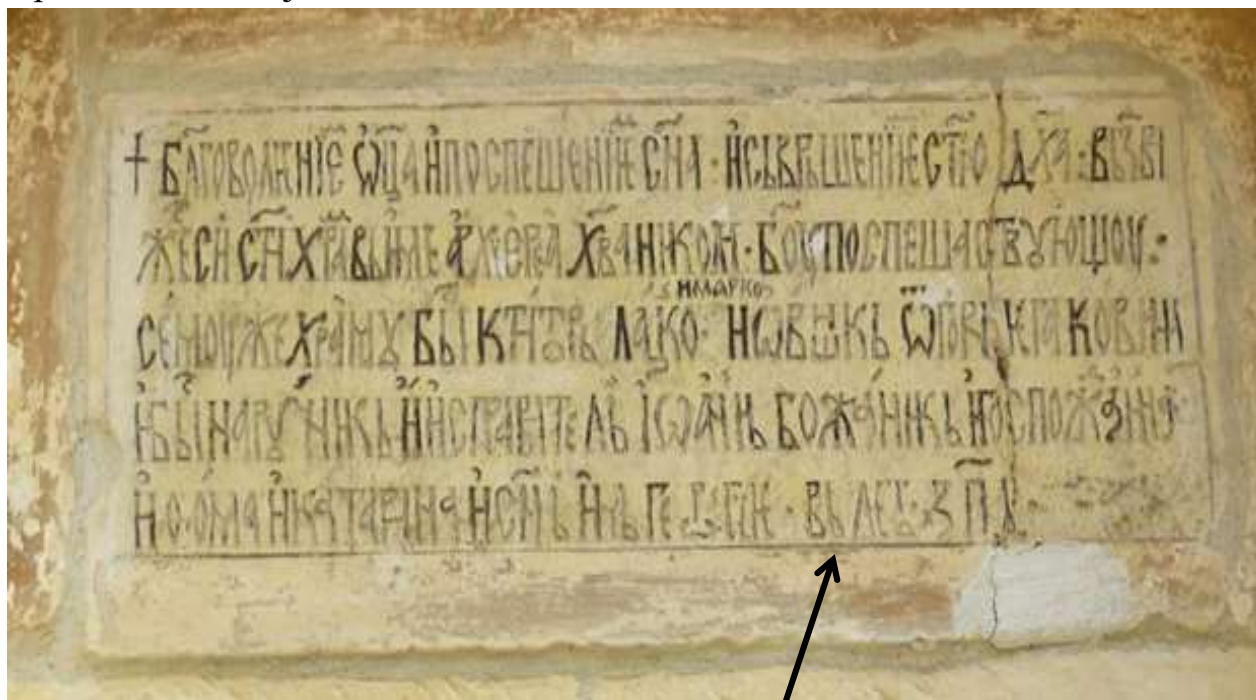 † БЛГОВОЛЕНІЕ ѾЦА И ПОСПЕШЕНІЕ СНА · И СЬВРЬШЕНІЕ СТГО ДХА · ВЬЗВІ
ЖЕ СИ СТИ ХРА ВЬ ИМЕ АРХІЕРѢА ХВА НИКОЛИ · БОУ ПОСПЕШАСТВУЮЩОУ :·
ИМАРКО
СЕМОУ ЖЕ ХРАМУ БЫ КТИТОРЬ ЛАЦКО · Ѿ ГОРНЬ
И БЫ НАРУЧНИКЬ И ИСПРАВИТЕЛЬ ІѠАНЬ БОЖАНИКЬ И ГОСПОЖА
И ѲОМА И КАТАРИНА И СНЬ ИМЬ ГЕѠРГІЕ · ВЬ ЛЕТ · З П